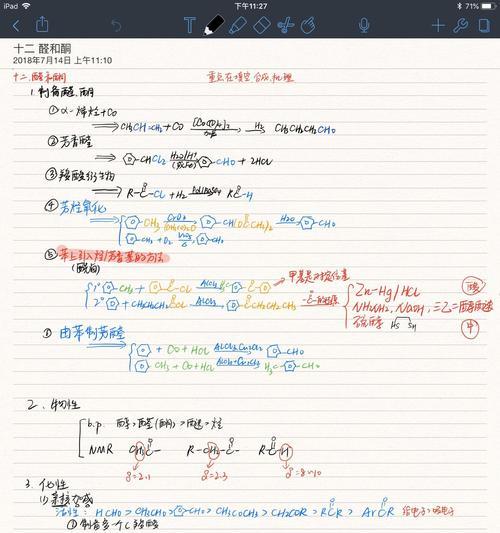 iPad 下午11:27 71%
十二 醛和酮
2018年7月14日 上午11:10
十二.醛和酮 重点在填空合成.机理
1.制备醛.酮
① α-烯烃+CO
CH3CH=CH2+CO [Co(CO)4]2 H2 CH3CH2CH2CHO
② 芳香醛
CHCl2 H2O/H+ CHO + 2HCl
③ 羧酸衍生物
R-C-Cl + H2 Pd/BaSO4 R-C-H
④ 芳烃氧化
CH3 CrO3 (CH3CO)2O CH(OCCH3)2 H2O CHO
CH3 + O2 CHO
⑤ 苯上引入烃/芳香基的方法
(酰化)
1° CH3 + C-Cl AlCl3 C 甲基是对位定位基
2° + CH3CH2CH2CCl AlCl3 CCH2CH2CH3
Zn-Hg/HCl
NH2NH2, NaOH, 三乙二醇
硫醇 HS SH
由苯制芳醛
+ CO + HCl AlCl3 Cu2Cl2 CHO
CH3 + CO + HCl AlCl3 Cu2Cl2 H3C CHO
2. 物性
b.p. 醇>醛(酮)>烃
NMR CH3C R-CH2-C R-C-H
δ=2.1 δ=2.3
3. 化性
(1) 亲核加成
活性: HCHO > CH3CHO > CHO > CH3COCH3 > CH3COR > RCR > ArCR